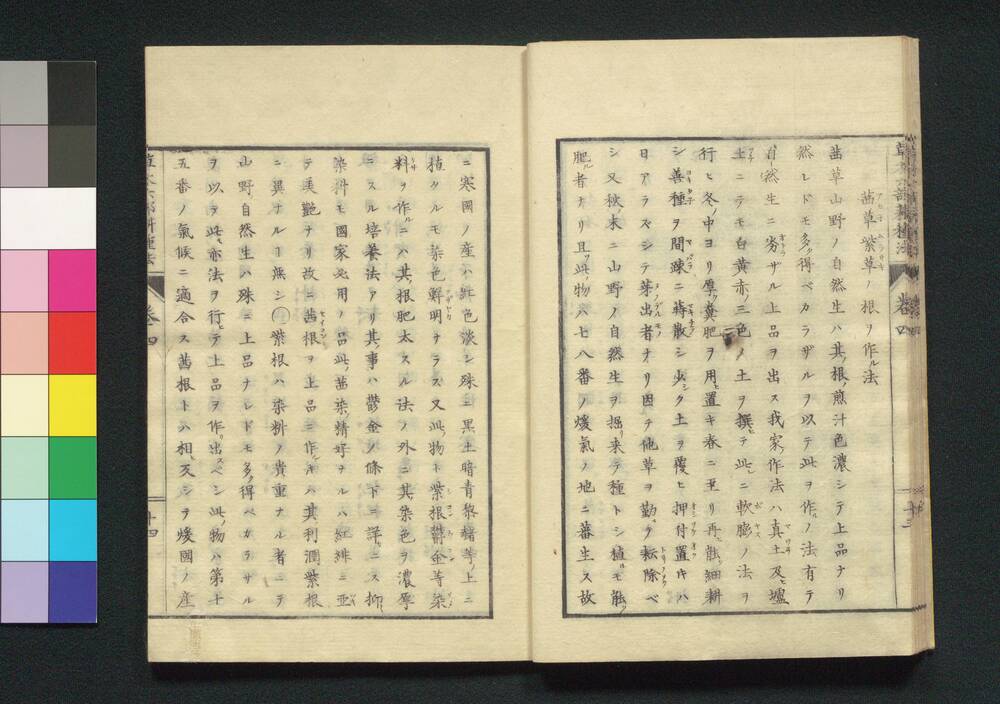 草木六部耕種法
巻四
十三
茜草紫草ノ根ヲ作ル法
茜草山野ノ自然生ハ其根ノ煎汁色濃シテ上品ナリ
然レドモ多ク得ベカラザルヲ以テ此ヲ作ルノ法有テ
自然生ニ劣ザル上品ヲ出ス我家ノ作法ハ真土及ヒ壚
土ニテモ白黄赤ノ三色ノ土ヲ撰テ此ニ軟膨ノ法ヲ
行ヒ冬ノ中ヨリ厚ク糞肥ヲ用ヒ置キ春ニ至リ再ヒ能細耕
シ善種ヲ間疎ニ蒔散シ少シク土ヲ覆ヒ押付置キハ
日アラズシテ芽出者ナリ因テ他草ヲ勤テ耘除ベ
シ又秋末ニ山野ノ自然生ヲ掘リ来テ種トシ植ルモ能
肥ル者ナリ且ツ此物ハ七八番ノ煖氣ノ地ニ蕃生ス故
ニ寒國ノ産ハ色淡シ殊ニ黒土暗青黎赭等ノ上ニ
植タルモ染色鮮明ナラス又此物ト紫根鬱金等染
料ヲ作ルニハ其根肥太スル法ノ外ニ其染色ヲ濃厚
ニスル培養法アリ其事ハ鬱金ノ條下ニ詳ニス抑
染料モ國家必用ノ品此茜染ノ精好ヲルハ紅緋ニ亜
テ美艶ナリ故ニ茜根ヲ上品ニ作ルキハ其利潤紫根
ニ異ナルー無シ紫根ハ染料ノ貴重ナル者ニテ
山野自然生ハ殊ニ上品ナレドモ多ク得ベカラサル
ヲ以テ此亦法ヲ行テ上品ヲ作リ出スベシ此物ハ第十
五番ノ氣候ニ適合ス茜根トハ相ヒ反シテ煖國ノ産
巻四
十四